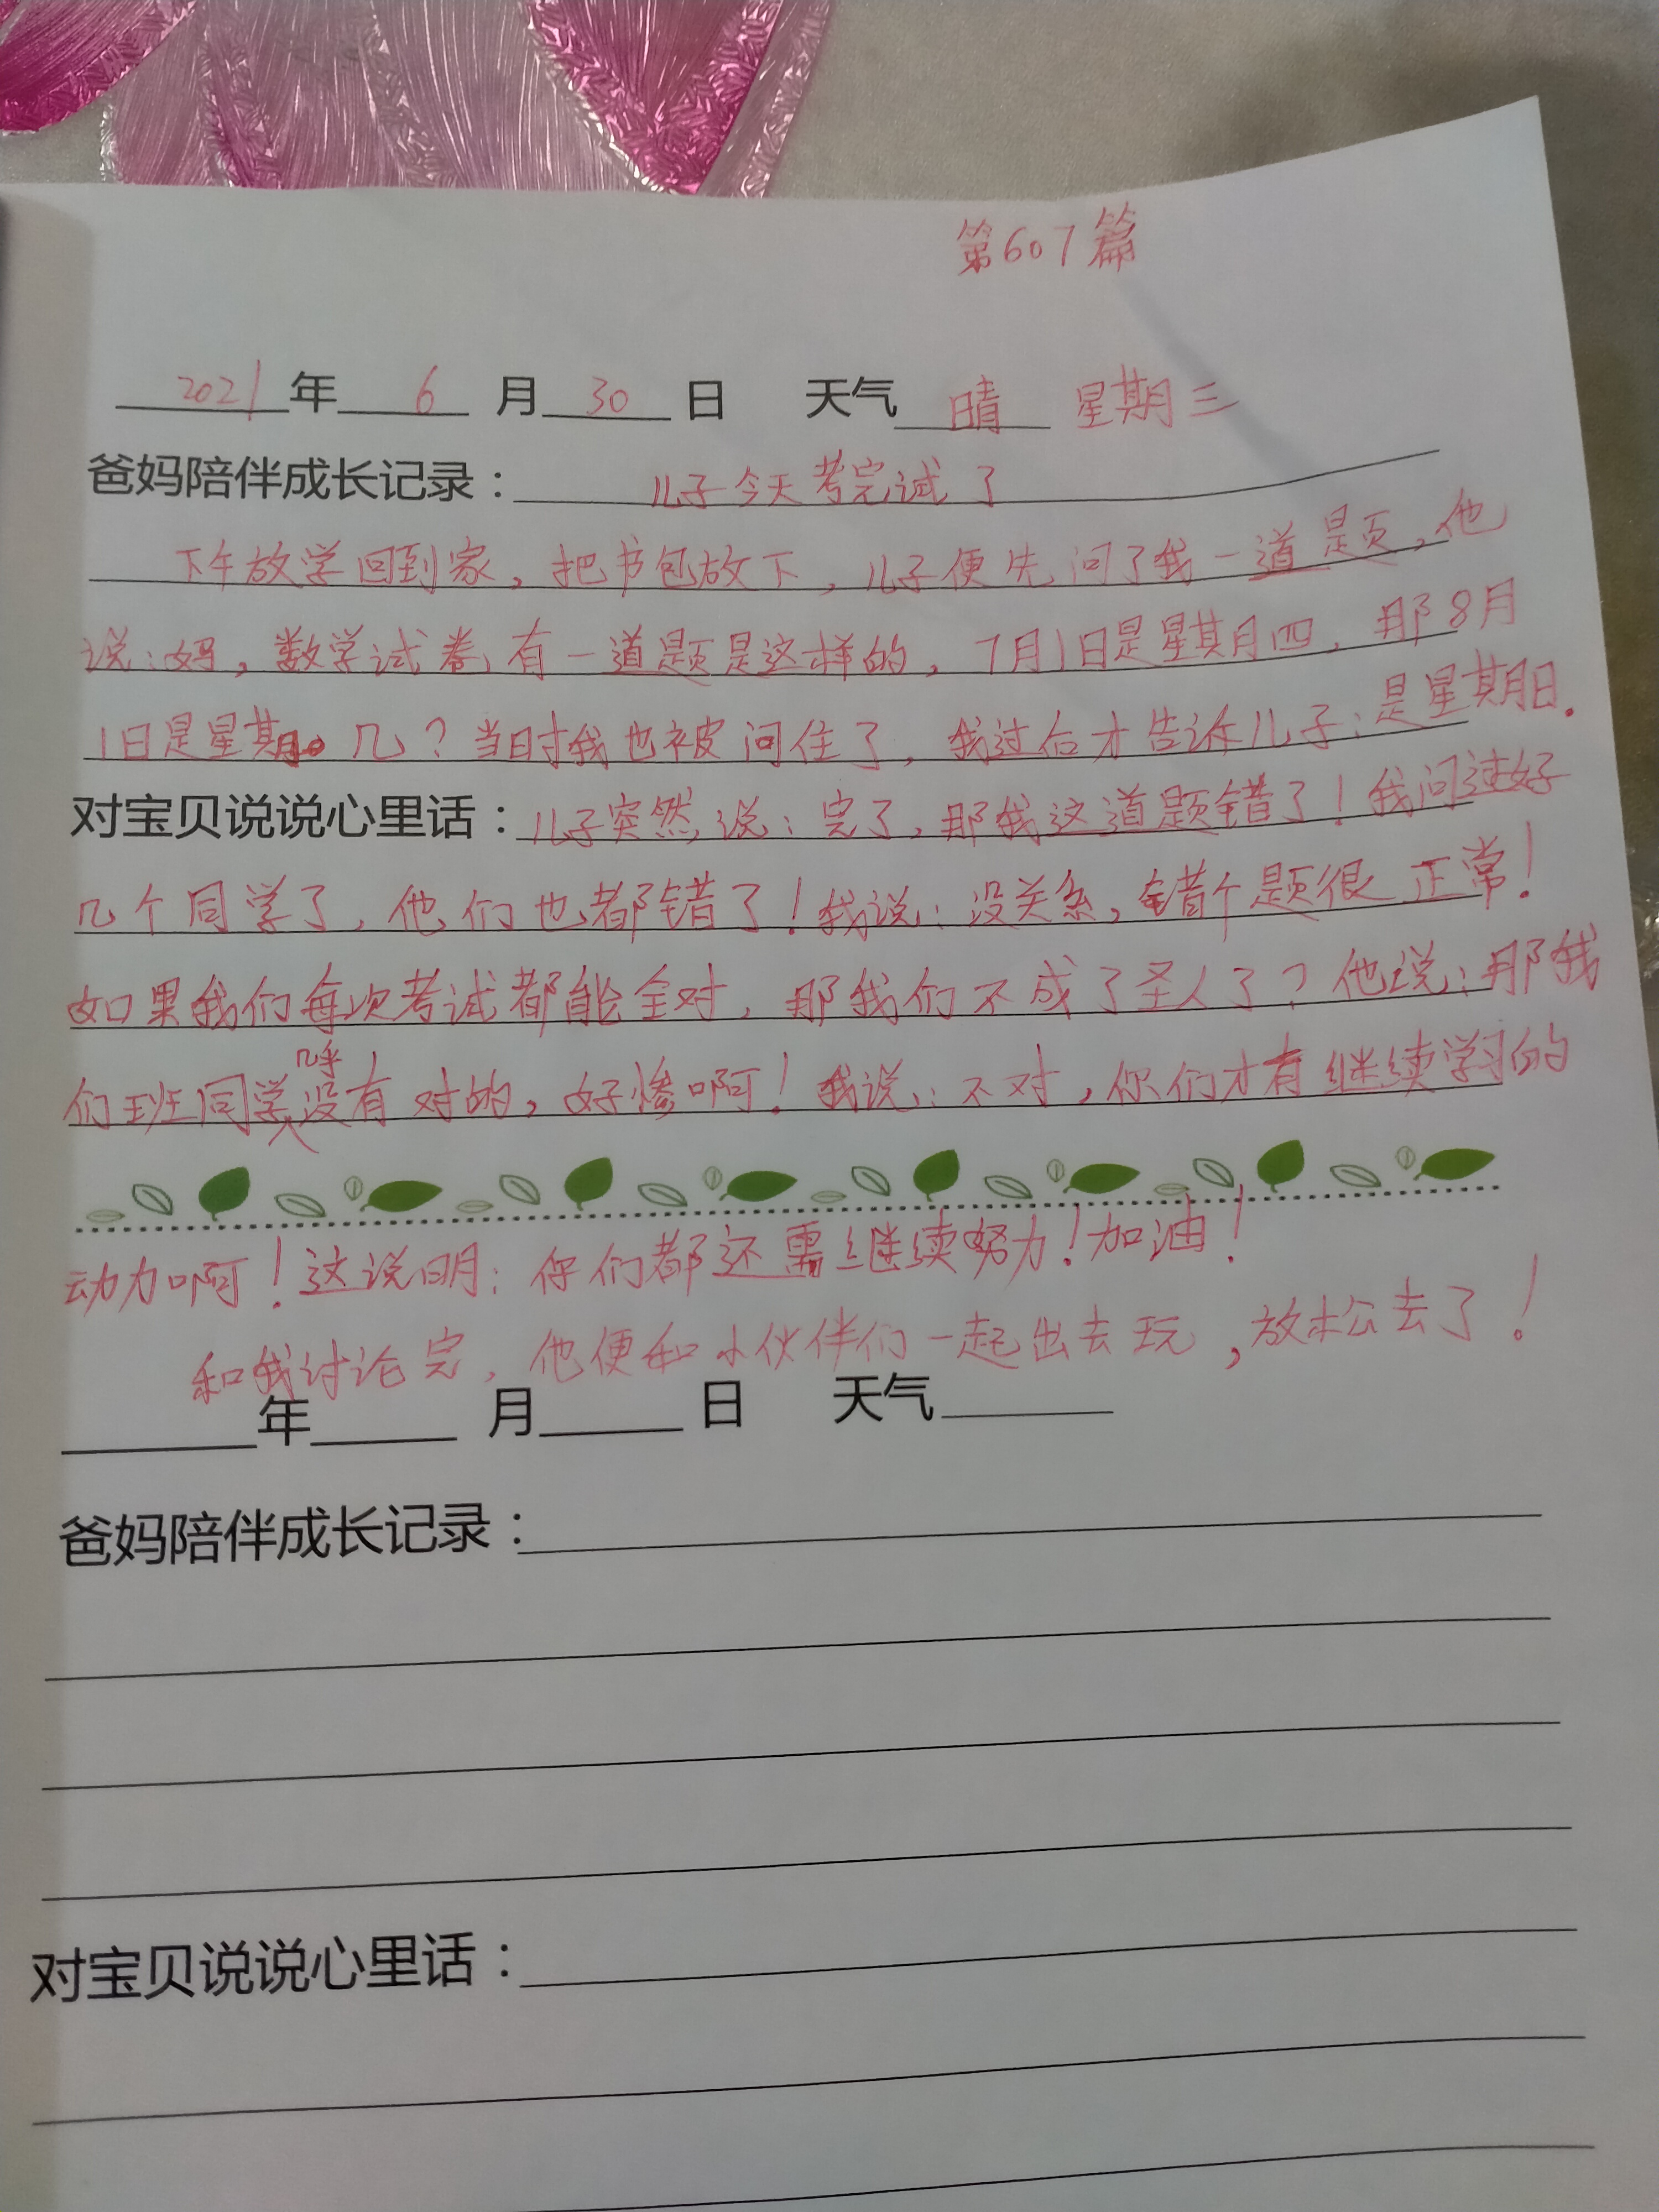 第607篇
2021年 6 月 30 日 天气 晴 星期三
爸妈陪伴成长记录：儿子今天考完试了
下午放学回到家，把书包放下，儿子便先问了我一道题，他
说：妈，数学试卷有一道题是这样的，7月1日是星期四，那8月
1日是星期几？当时我也被问住了，我过后才告诉儿子：是星期日。
对宝贝说说心里话：儿子突然说：完了，那我这道题错了！我问过好
几个同学了，他们也都错了！我说：没关系，错个题很正常！
如果我们每次考试都能全对，那我们不成了圣人了？他说：那我
们班同学几乎没有对的，好惨啊！我说：不对，你们才有继续学习的
动力啊！这说明：你们都还需继续努力！加油！
和我讨论完，他便和小伙伴们一起出去玩，放松去了！
年 月 日 天气
爸妈陪伴成长记录：
对宝贝说说心里话：